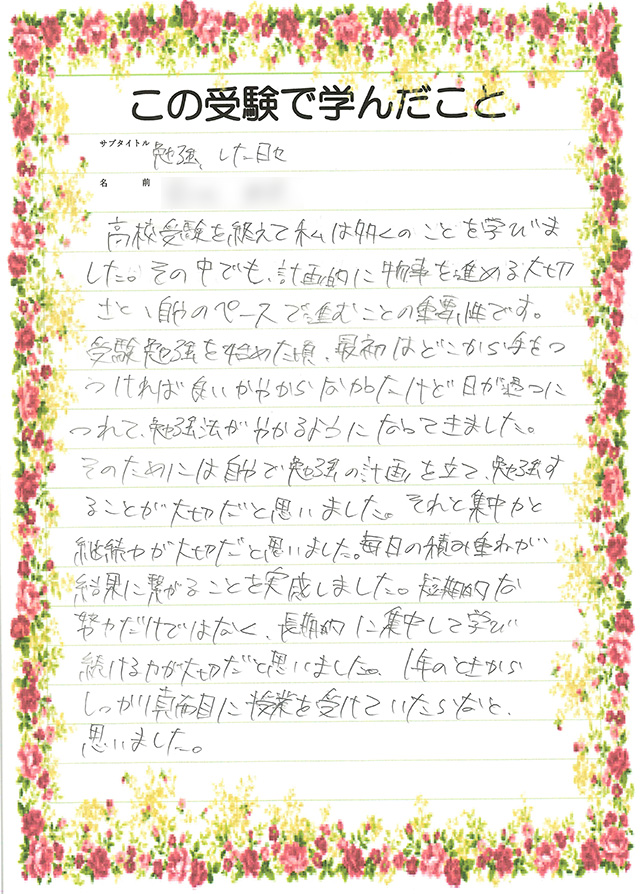 この受験で学んだこと
サブタイトル 勉強した日々
名前
高校受験を終えて私は多くのことを学びま
した。その中でも、計画的に物事を進める大切
さと、自分のペースで進むことの重要性です。
受験勉強を始めた頃、最初はどこから手をつ
つければ良いかわからなかったけど日が過つに
つれて、勉強法がわかるようになってきました。
そのためには自分で勉強の計画を立て、勉強す
ることが大切だと思いました。それと集中力と
継続力が大切だと思いました。毎日の積み重ねが
結果に繋がることを実感しました。短期的な
努力だけではなく、長期的に集中して学び
続ける力が大切だと思いました。1年のときから
しっかり真面目に授業を受けていたらなと、
思いました。